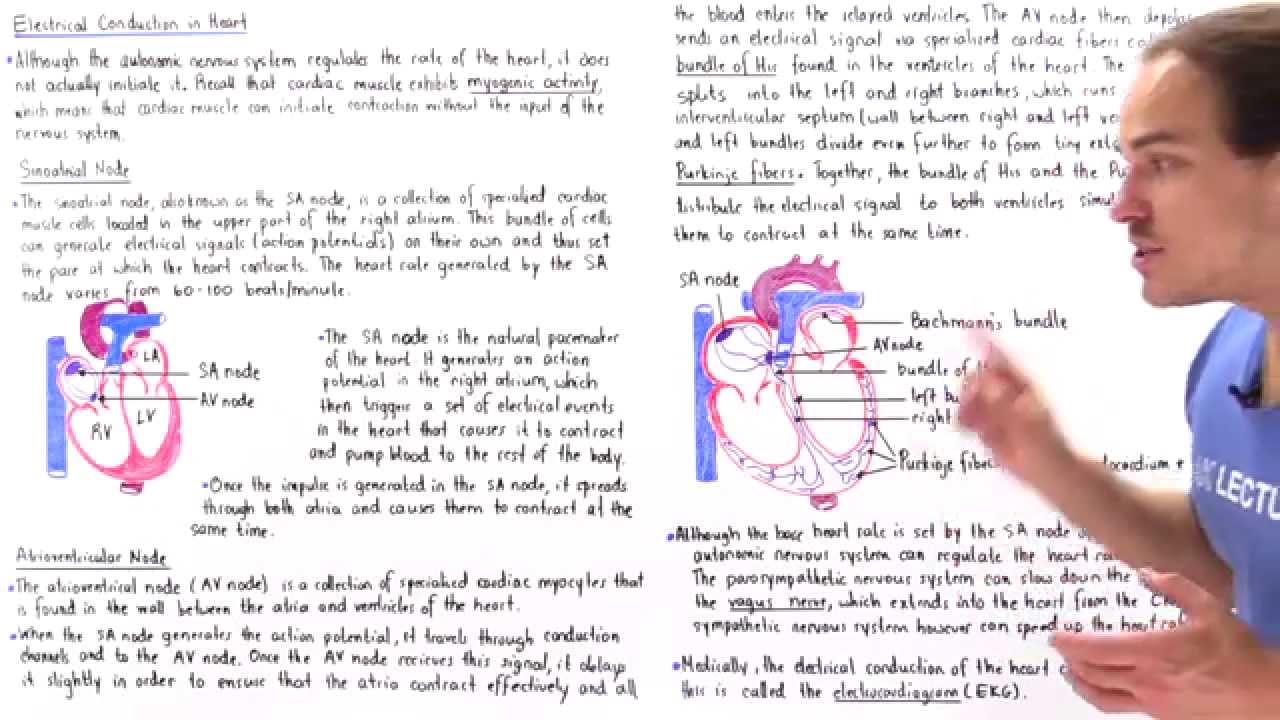 Electrical Conduction in Heart
• Although the autonomic nervous system regulates the rate of the heart, it does
not actually initiate it. Recall that cardiac muscle exhibits myogenic activity,
which means that cardiac muscle can initiate contraction without the input of the
nervous system.
Sinoatrial Node
• The sinoatrial node, also known as the SA node, is a collection of specialized cardiac
muscle cells located in the upper part of the right atrium. This bundle of cells
can generate electrical signals (action potentials) on their own and thus set
the pace at which the heart contracts. The heart rate generated by the SA
node varies from 60-100 beats/minute.
LA
SA node
AV node
RV
LV
• The SA node is the natural pacemaker
of the heart. It generates an action
potential in the right atrium, which
then triggers a set of electrical events
in the heart that causes it to contract
and pump blood to the rest of the body.
• Once the impulse is generated in the SA node, it spreads
through both atria and causes them to contract at the
same time.
Atrioventricular Node
• The atrioventrical node (AV node) is a collection of specialized cardiac myocytes that
is found in the wall between the atria and ventricles of the heart.
• When the SA node generates the action potential, it travels through conduction
channels and to the AV node. Once the AV node recieves this signal, it delays
it slightly in order to ensure that the atria contract effectively and all
the blood enters the relaxed ventricles. The AV node then
sends an electrical signal via specialized cardiac fibers
bundle of His found in the ventricles of the heart. The
splits into the left and right branches, which runs
interventricular septum (wall between right and left
and left bundles divide even further to form tiny
Purkinje fibers. Together, the bundle of His and the
distribute the electrical signal to both ventricles
them to contract at the same time.
SA node
Bachmann's bundle
AV node
bundle of
left
right
Purkinje
+
• Although the base heart rate is set by the SA node
autonomic nervous system can regulate the heart
The parasympathetic nervous system can slow down the
the vagus nerve, which extends into the heart from the
sympathetic nervous system however can speed up the heart
• Medically, the electrical conduction of the heart
this is called the electrocardiogram (EKG).
LECTU